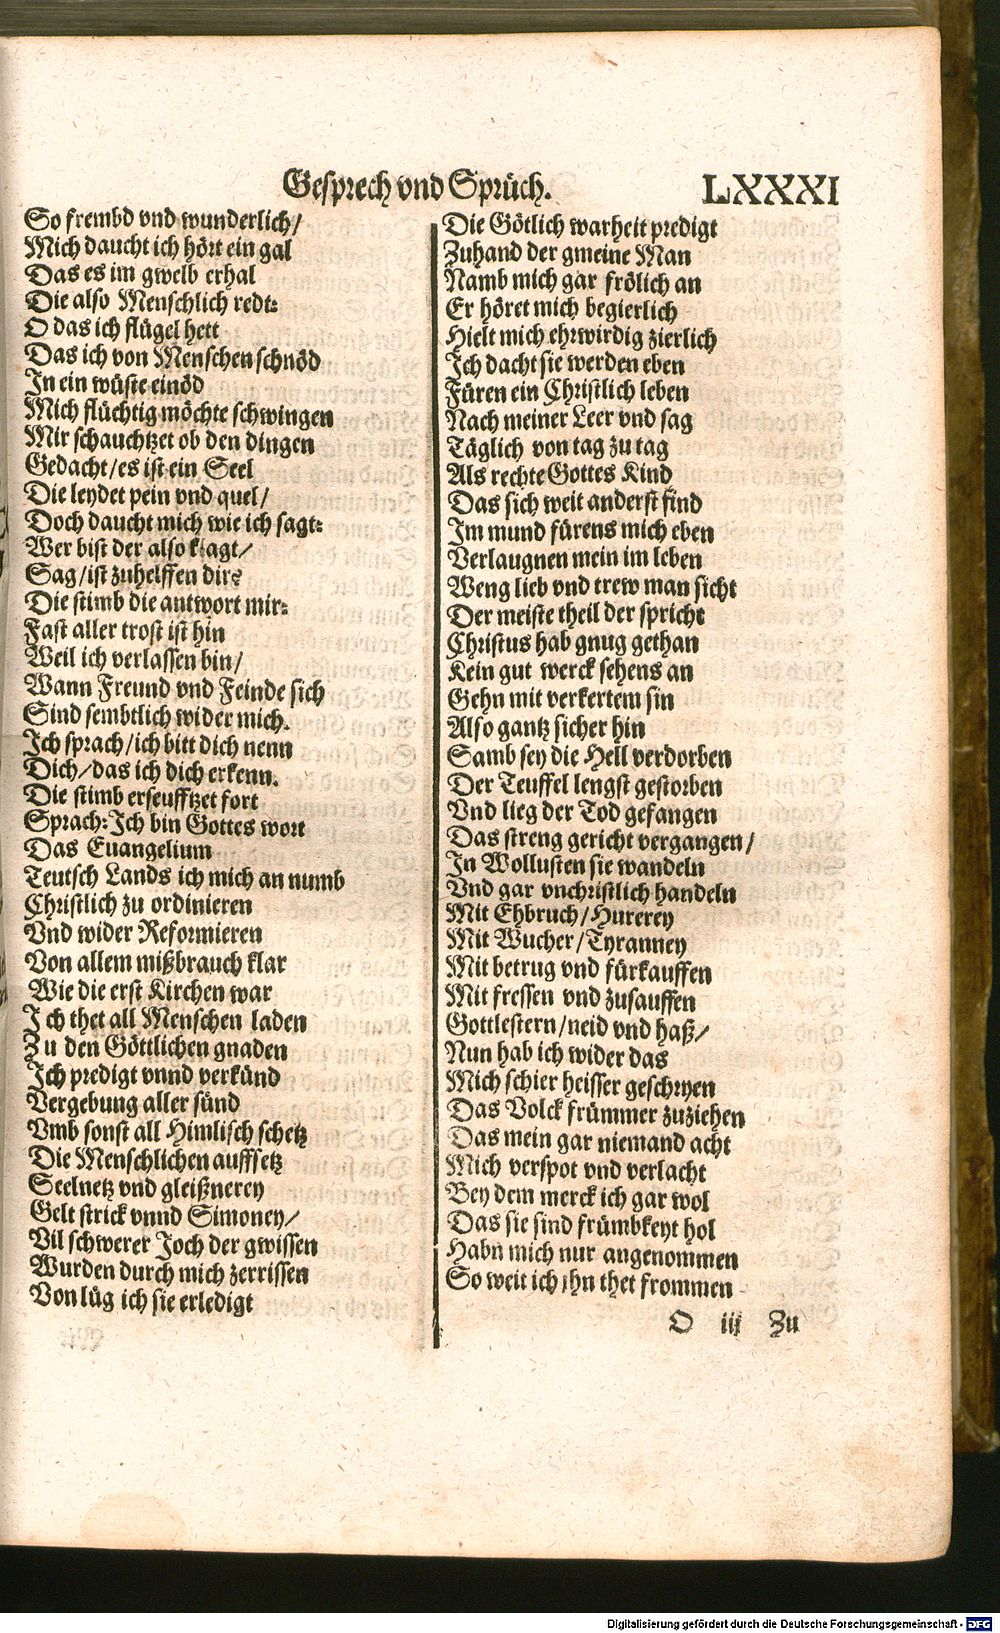 Gesprech vnd Sprüch. LXXXI
So frembd vnd wunderlich/
Mich daucht ich hört ein gal
Das es im gwelb erhal
Die also Menschlich redt:
O das ich flügel hett
Das ich von Menschen schnöd
In ein wüste einöd
Mich flüchtig möchte schwingen
Mir schauchtzet ob den dingen
Gedacht/es ist ein Seel
Die leydet pein vnd quel/
Doch daucht mich wie ich sagt:
Wer bist der also klagt/
Sag/ist zuhelffen dir?
Die stimb die antwort mir:
Fast aller trost ist hin
Weil ich verlassen bin/
Wann Freund vnd Feinde sich
Sind sembtlich wider mich.
Ich sprach/ich bitt dich nenn
Dich/das ich dich erkenn.
Die stimb erseufftzet fort
Sprach: Ich bin Gottes wort
Das Euangelium
Teutsch Lands ich mich an numb
Christlich zu ordinieren
Vnd wider Reformieren
Von allem mißbrauch klar
Wie die erst Kirchen war
Ich thet all Menschen laden
Zu den Göttlichen gnaden
Ich predigt vnnd verkünd
Vergebung aller sünd
Vmb sonst all Himlisch schetz
Die Menschlichen auffsetz
Seelnetz vnd gleißnerey
Gelt strick vnnd Simoney/
Vil schwerer Joch der gwissen
Wurden durch mich zerrissen
Von lüg ich sie erledigt
Die Götlich warheit predigt
Zuhand der gmeine Man
Namb mich gar frölich an
Er höret mich begierlich
Hielt mich ehrwirdig zierlich
Ich dacht sie werden eben
Füren ein Christlich leben
Nach meiner Leer vnd sag
Täglich von tag zu tag
Als rechte Gottes Kind
Das sich weit anderst find
Im mund fürens mich eben
Verlaugnen mein im leben
Weng lieb vnd trew man sicht
Der meiste theil der spricht
Christus hab gnug gethan
Kein gut werck sehens an
Gehn mit verkertem sin
Also gantz sicher hin
Samb sey die Hell verdorben
Der Teuffel lengst gestorben
Vnd lieg der Tod gefangen
Das streng gericht vergangen/
In Wollusten sie wandeln
Vnd gar vnchristlich handeln
Mit Ehbruch/Hurerey
Mit Wucher/Tyranney
Mit betrug vnd fürkauffen
Mit fressen vnd zusauffen
Gottlestern/neid vnd haß/
Nun hab ich wider das
Mich schier heisser geschryen
Das Volck frümmer zuziehen
Das mein gar niemand acht
Mich verspot vnd verlacht
Bey dem merck ich gar wol
Das sie sind frümbkeyt hol
Habn mich nur angenommen
So weit ich ihn thet frommen
O iij Zu
Digitalisierung gefördert durch die Deutsche Forschungsgemeinschaft - DFG